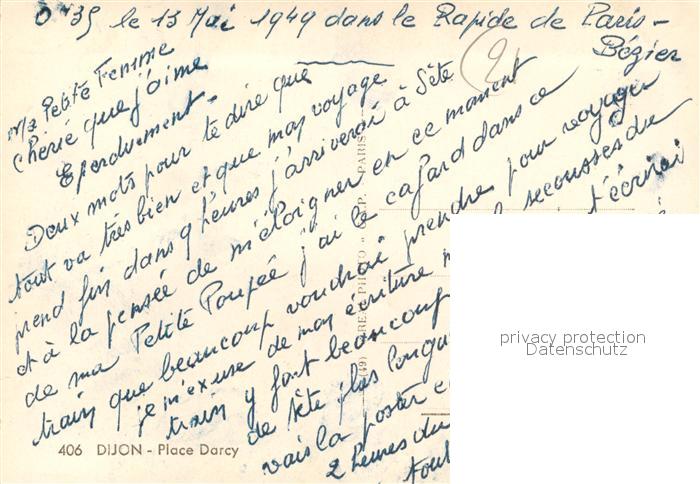 0h35 le 13 Mai 1949 dans le Rapide de Paris-
Bézier
Ma Petite Femme
Chérie que j'aime
Eperdument.
Deux mots pour te dire que
tout va très bien et que mon voyage
prend fin dans 9 heures j'arriverai à Sète
et à la pensée de m'éloigner en ce moment
de ma Petite Poupée j'ai le cafard dans ce
train que beaucoup voudrai prendre pour voyager
je m'exuse de mon écriture les secousses du
train y font beaucoup t'écrirai
de Sète plus longu
vais la poster
2 heures du
tout
406 DIJON - Place Darcy
REAL-PHOTO - C.A.P. PARIS
privacy protection
Datenschutz